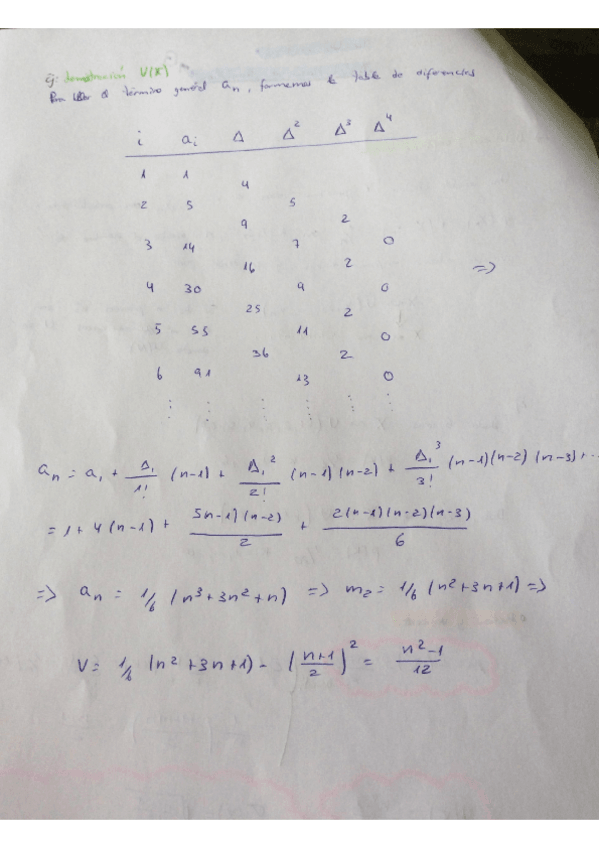 Ej: demostración V(X)
Para hallar el término general an, formemos la tabla de diferencias
i ai Δ Δ² Δ³ Δ⁴
1 1
4
2 5 5
9 2
3 14 7 0
16 2
4 30 9 0 =>
25 2
5 55 11 0
36 2
6 91 13 0
⋮ ⋮ ⋮ ⋮ ⋮ ⋮
an = a1 + Δ1/1! (n-1) + Δ1²/2! (n-1)(n-2) + Δ1³/3! (n-1)(n-2)(n-3)+...
= 1 + 4(n-1) + 5n-1)(n-2)/2 + 2(n-1)(n-2)(n-3)/6
=> an = 1/6 (n³+3n²+n) => m2 = 1/6 (n²+3n+1) =>
V = 1/6 (n²+3n+1) - (n+1/2)² = n²-1/12